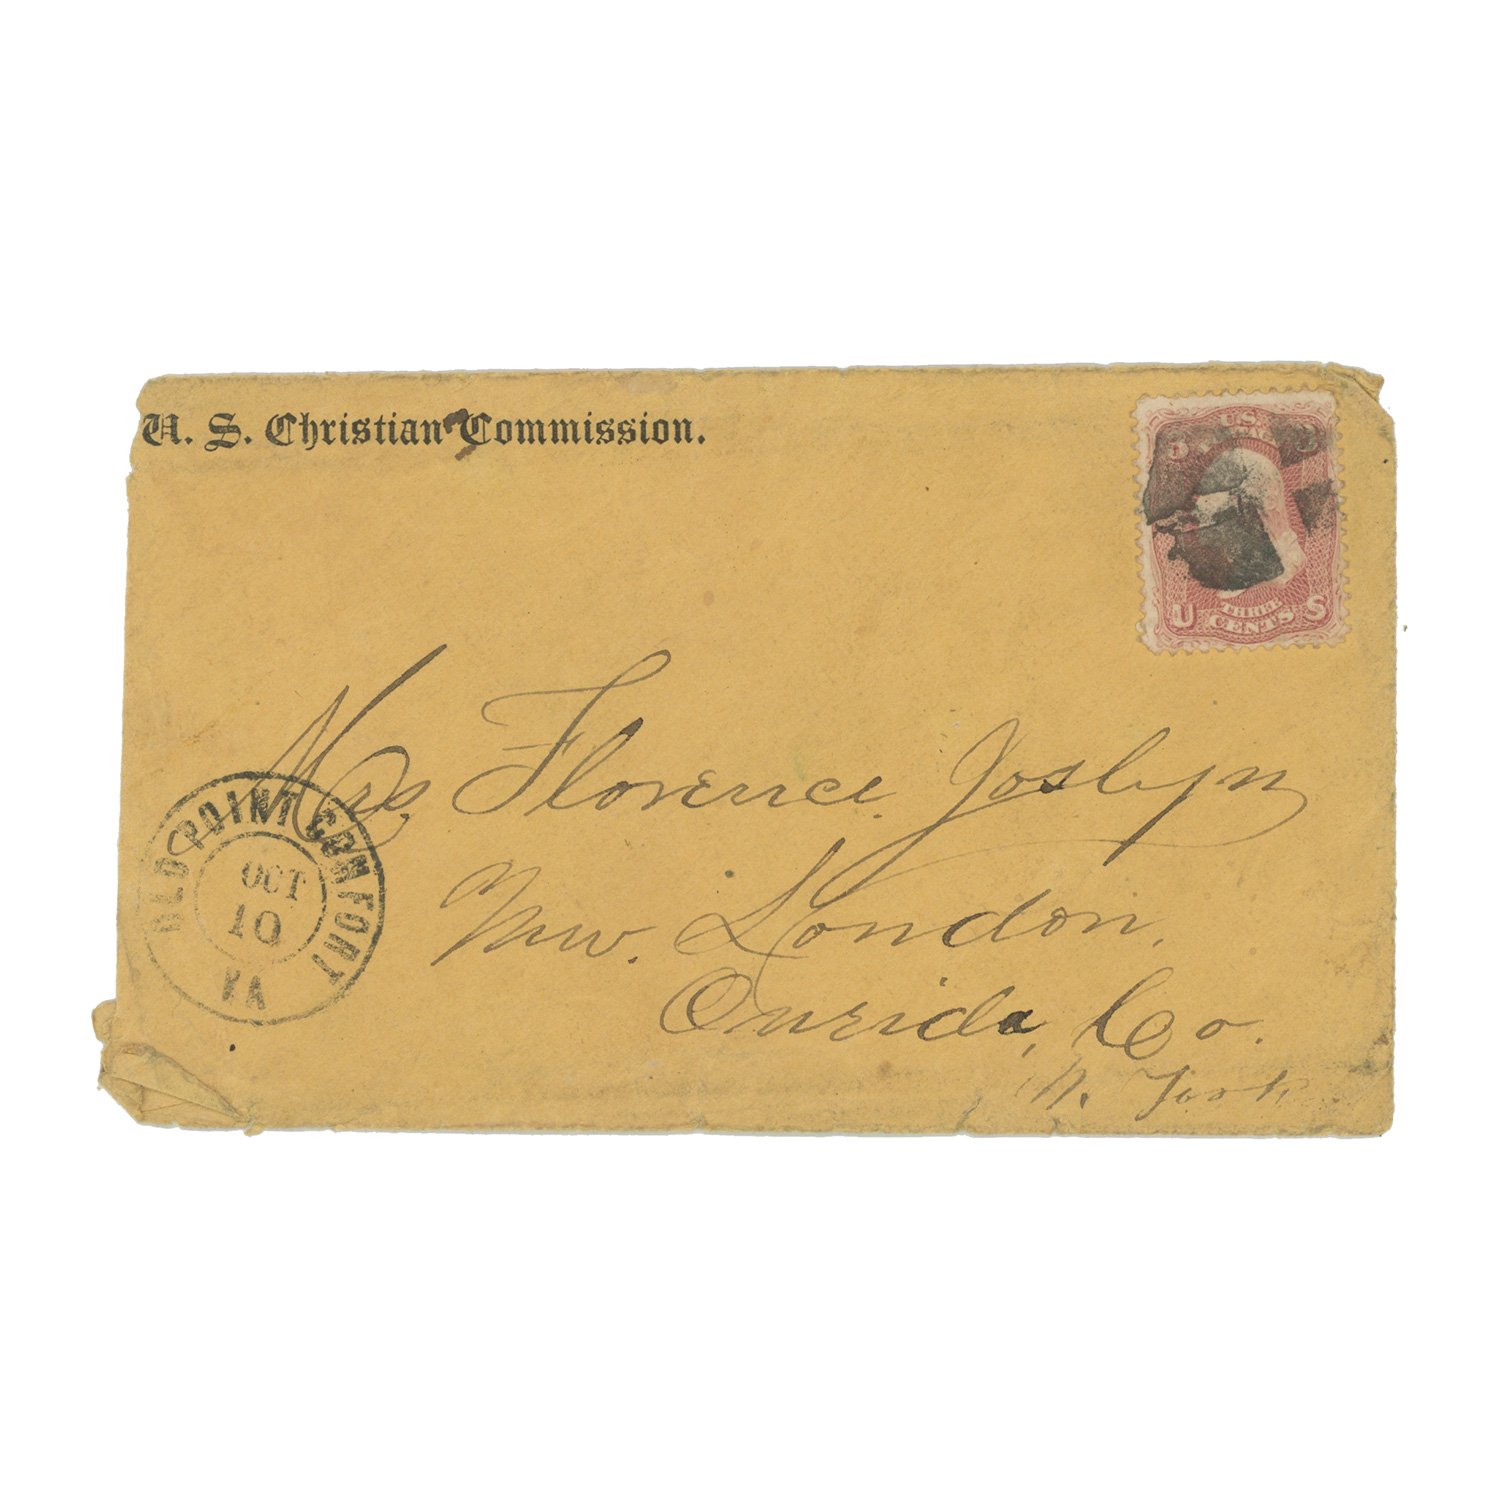 U. S. Christian Commission.
3 3
U S
THREE
CENTS
U S
Mrs, Florence Joslyn
New. London,
Oneida, Co.
N. York
OLD POINT COMFORT
OCT
10
VA